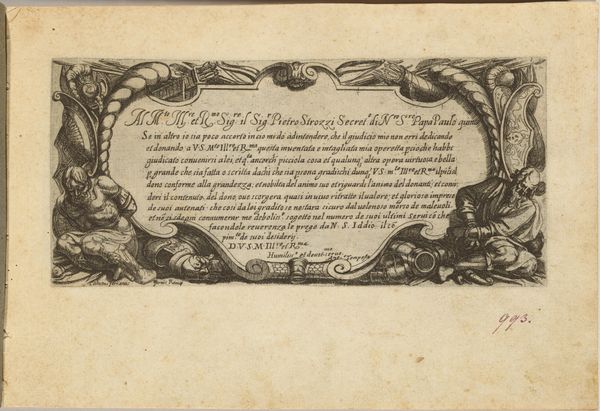 Al M.to Ill.re et R.mo Sig.re il Sig.r Pietro Strozzi Secret.o di N.ro S.re Papa Paulo quinto
Se in altro io sia poco accorto in cio mi do ad intendere, che il giudicio mio non erri dedicando
et donando a V.S. M.to Ill.re et R.ma questa inuentata e intagliata mia operetta pcioche habbi
giudicato conuenirsi a lei, et q.ta ancorch picciola cosa et qualunq altra opera uirtuosa e bella
p grande che sia fatta o scritta
conforme alla grandezza, et nobilta del animo suo et riguardi l'animo del donante, et consi
deri il contenuto del dono, oue scorgera quasi in uiuo ritratte il ualore, et gloriose imprese
de suoi antenati che cosi da lei gradito se ne stara sicuro dal uelenoso morso de maleuoli.
sogetto nel numero de suoi ultimi serui che
facendole reuerenza le prego da N. S. Iddio il co
pim.to de suoi desiderij.
D. V. S. M. Ill.re et R.ma
Humiliss.o et deuotissimo Ant. Tempesta
Romę
993.